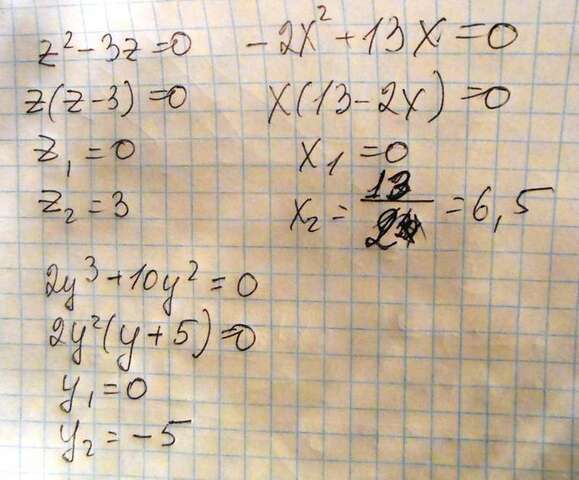 z² - 3z = 0
z(z - 3) = 0
z₁ = 0
z₂ = 3
-2x² + 13x = 0
x(13 - 2x) = 0
x₁ = 0
x₂ = 13/2 = 6,5
2y³ + 10y² = 0
2y²(y + 5) = 0
y₁ = 0
y₂ = -5